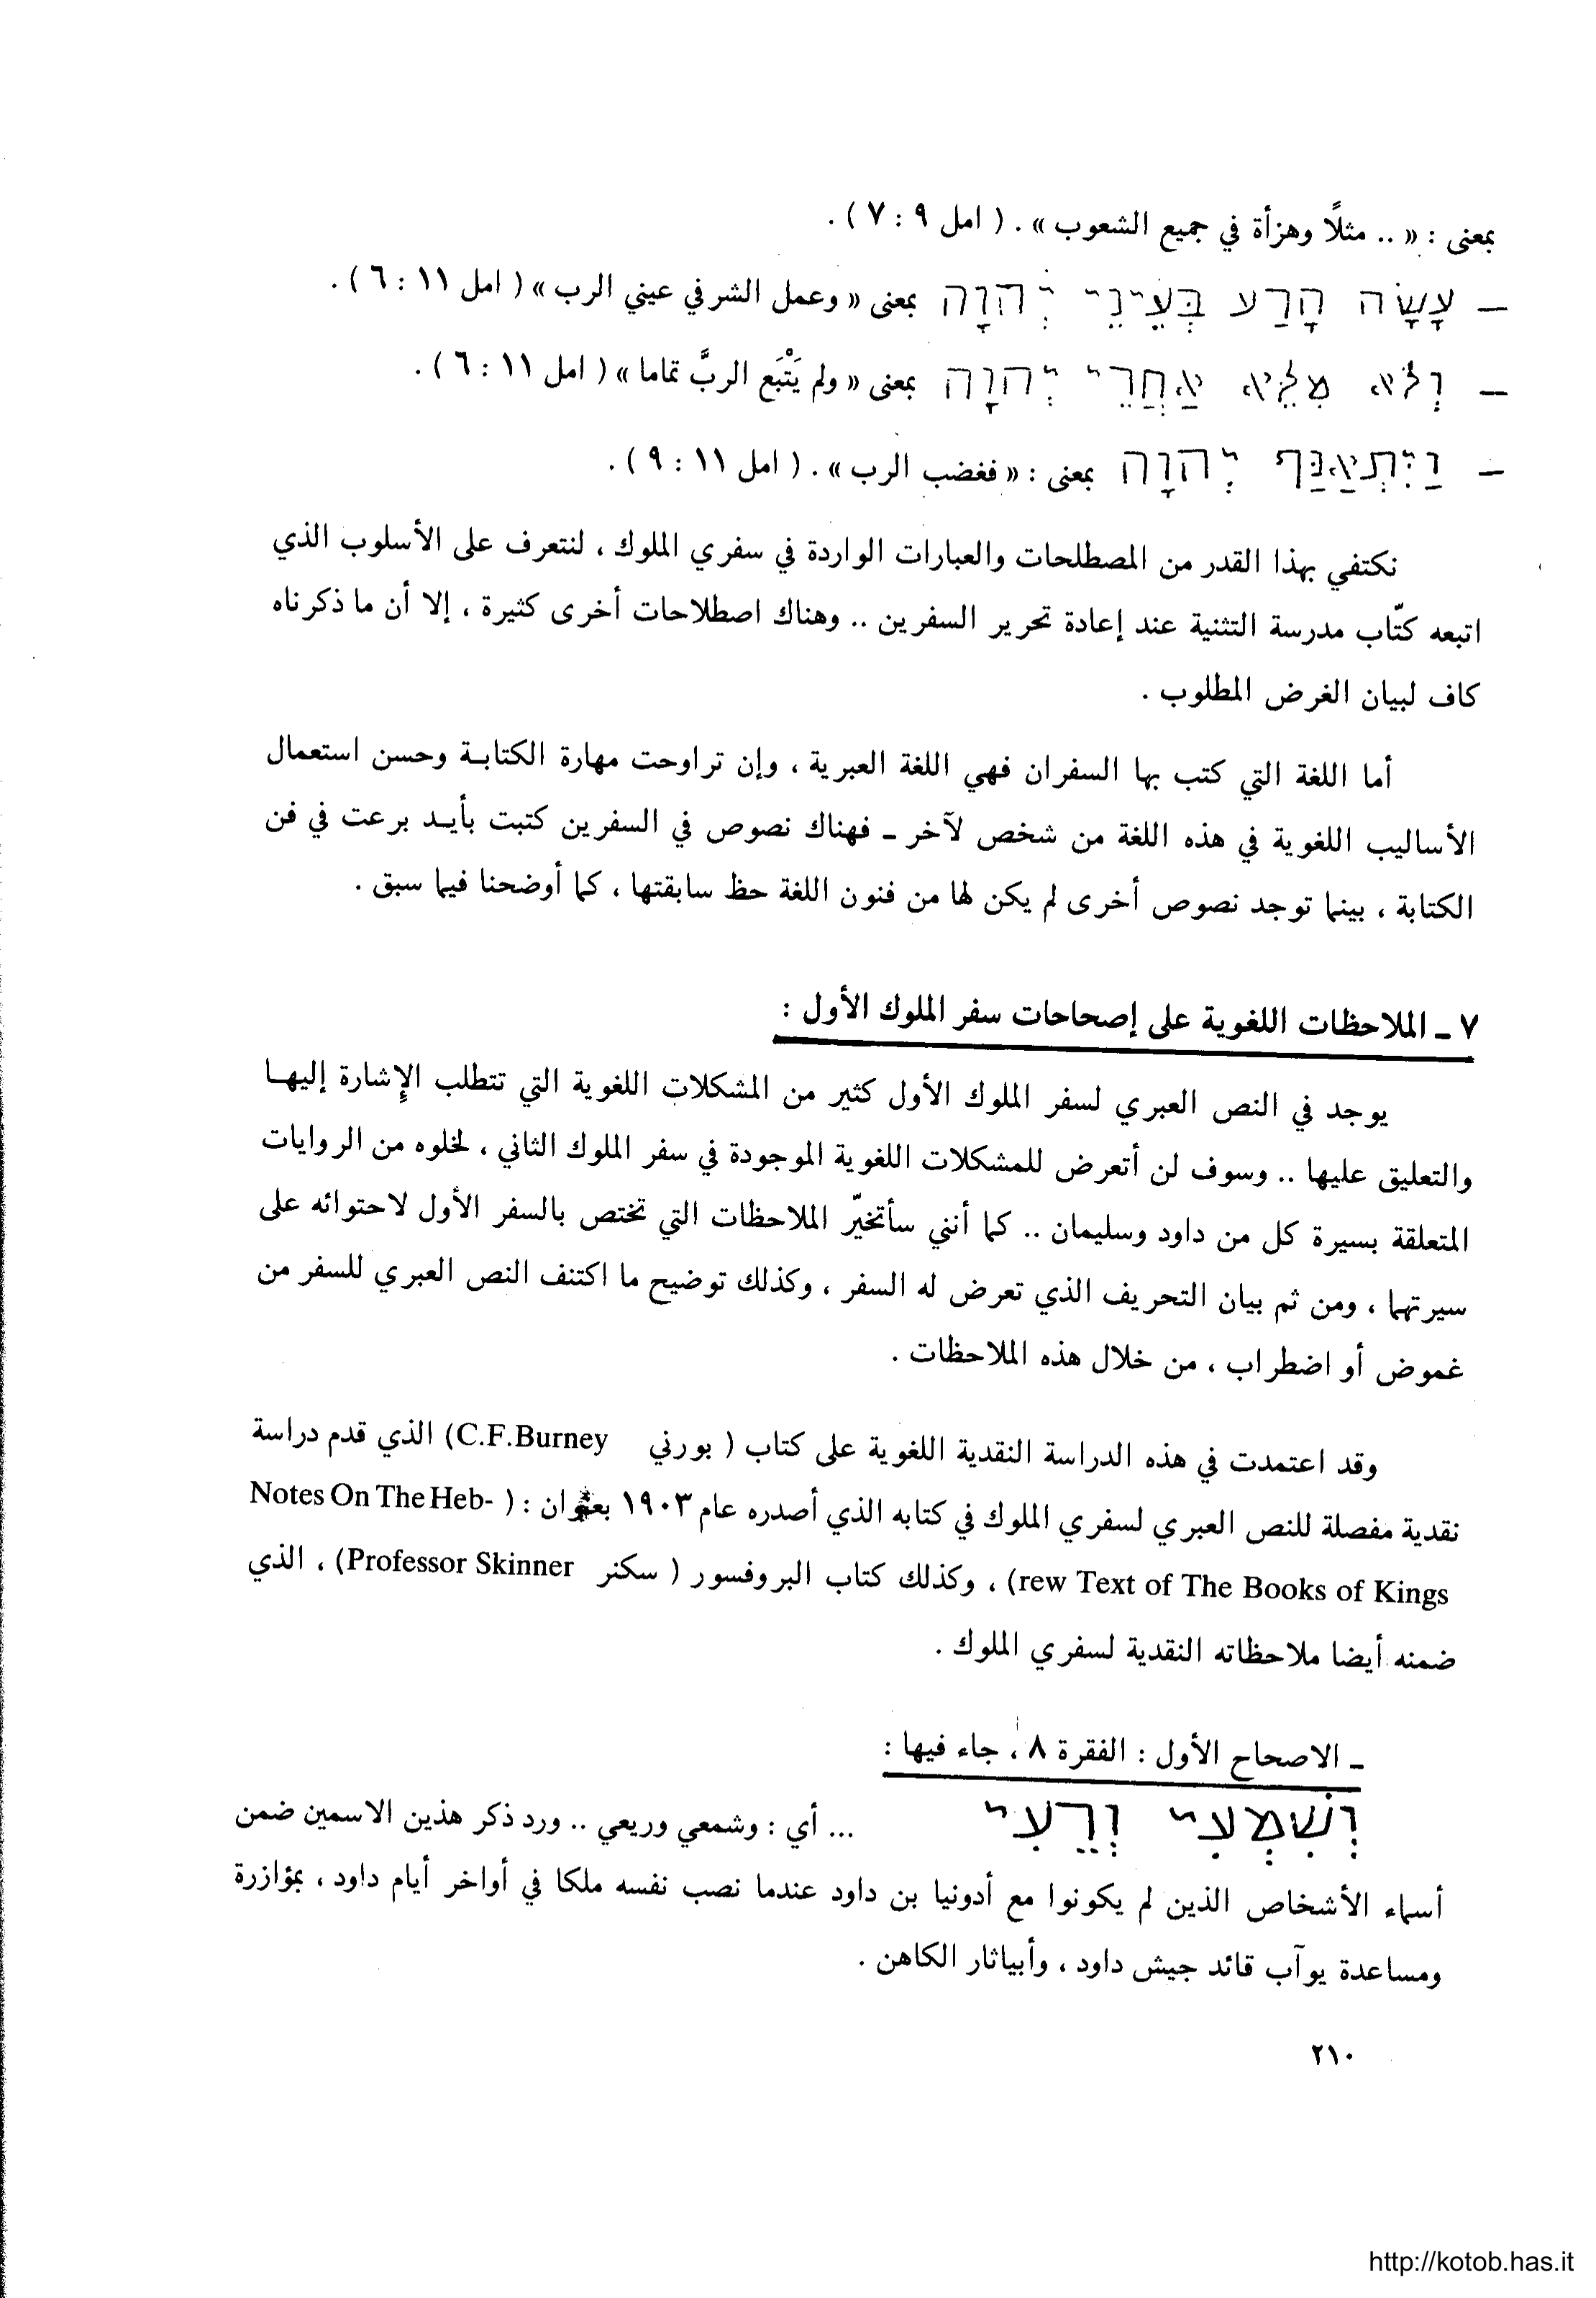 بمعنى : « .. مثلًا وهزأة في جميع الشعوب » . ( امل ٩ : ٧ ) .
— עָשָׂה הָרַע בְּעֵינֵי יְהוָה بمعنى « وعمل الشر في عيني الرب » ( امل ١١ : ٦ ) .
— וְלֹא מִלֵּא אַחֲרֵי יְהוָה بمعنى « ولم يَتْبَع الربَّ تماما » ( امل ١١ : ٦ ) .
— וַיִּתְאַנַּף יְהוָה بمعنى : « فغضب الرب » . ( امل ١١ : ٩ ) .
نكتفي بهذا القدر من المصطلحات والعبارات الواردة في سفري الملوك ، لنتعرف على الأسلوب الذي
اتبعه كتّاب مدرسة التثنية عند إعادة تحرير السفرين .. وهناك اصطلاحات أخرى كثيرة ، إلا أن ما ذكرناه
كاف لبيان الغرض المطلوب .
أما اللغة التي كتب بها السفران فهي اللغة العبرية ، وإن تراوحت مهارة الكتابة وحسن استعمال
الأساليب اللغوية في هذه اللغة من شخص لآخر ـ فهناك نصوص في السفرين كتبت بأيد برعت في فن
الكتابة ، بينما توجد نصوص أخرى لم يكن لها من فنون اللغة حظ سابقتها ، كما أوضحنا فيما سبق .
٧ ـ الملاحظات اللغوية على إصحاحات سفر الملوك الأول :
يوجد في النص العبري لسفر الملوك الأول كثير من المشكلات اللغوية التي تتطلب الإشارة إليها
والتعليق عليها .. وسوف لن أتعرض للمشكلات اللغوية الموجودة في سفر الملوك الثاني ، لخلوه من الروايات
المتعلقة بسيرة كل من داود وسليمان .. كما أنني سأتخيّر الملاحظات التي تختص بالسفر الأول لاحتوائه على
سيرتهما ، ومن ثم بيان التحريف الذي تعرض له السفر ، وكذلك توضيح ما اكتنف النص العبري للسفر من
غموض أو اضطراب ، من خلال هذه الملاحظات .
وقد اعتمدت في هذه الدراسة النقدية اللغوية على كتاب ( بورني C.F.Burney) الذي قدم دراسة
نقدية مفصلة للنص العبري لسفري الملوك في كتابه الذي أصدره عام ١٩٠٣ بعنوان : ( Notes On The Heb-
rew Text of The Books of Kings) ، وكذلك كتاب البروفسور ( سكنر Professor Skinner) ، الذي
ضمنه أيضا ملاحظاته النقدية لسفري الملوك .
ـ الاصحاح الأول : الفقرة ٨ ، جاء فيها :
וְשִׁמְעִי וְרֵעִי ... أي : وشمعي وريعي .. ورد ذكر هذين الاسمين ضمن
أسماء الأشخاص الذين لم يكونوا مع أدونيا بن داود عندما نصب نفسه ملكا في أواخر أيام داود ، بمؤازرة
ومساعدة يوآب قائد جيش داود ، وأبياثار الكاهن .
٢١٠
http://kotob.has.it